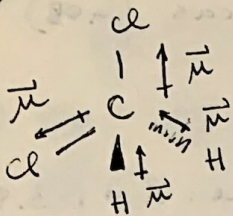 Cl
μ⃗
μ⃗ C μ⃗
Cl H
H μ⃗